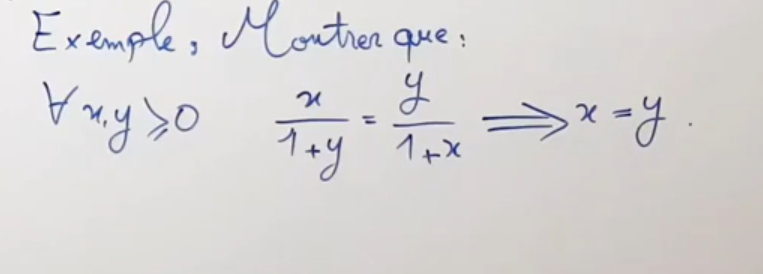 Exemple, Montrer que :
∀ x, y ⩾ 0   x/(1+y) = y/(1+x) ⟹ x = y .